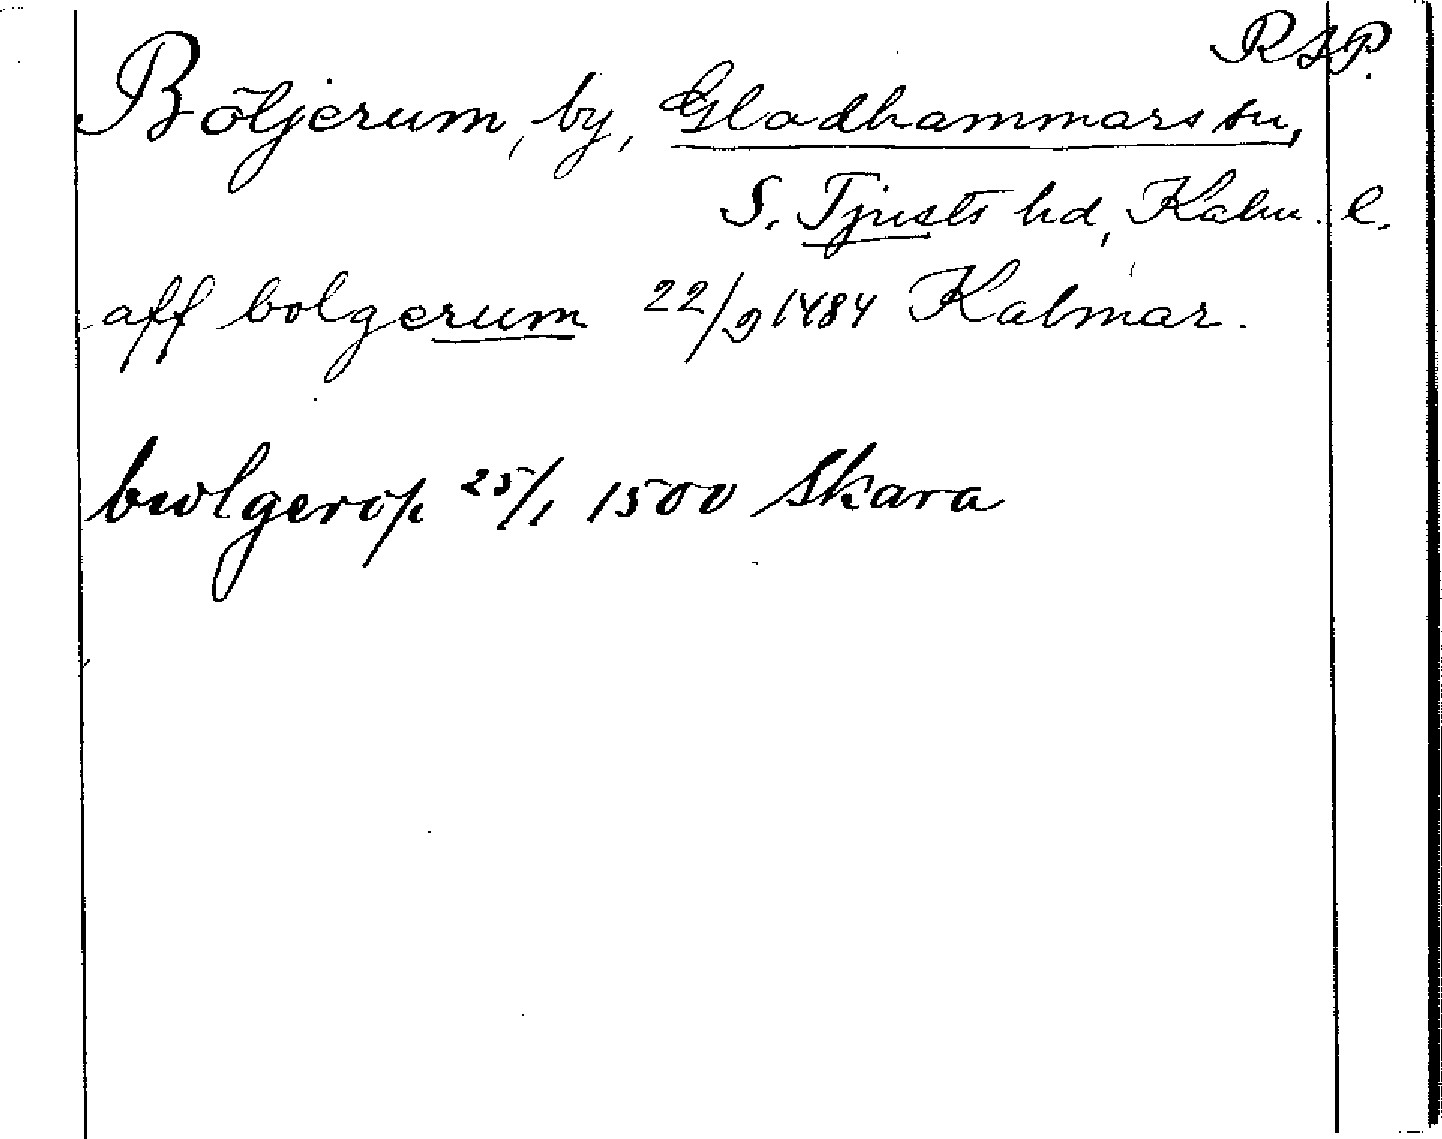 RSP.
Böljerum, by, Gladhammars sn,
S. Tjusts hd, Kalm. l.
aff bolgerum 22/9 1484 Kalmar.
bwlgerøp 25/1 1500 Skara